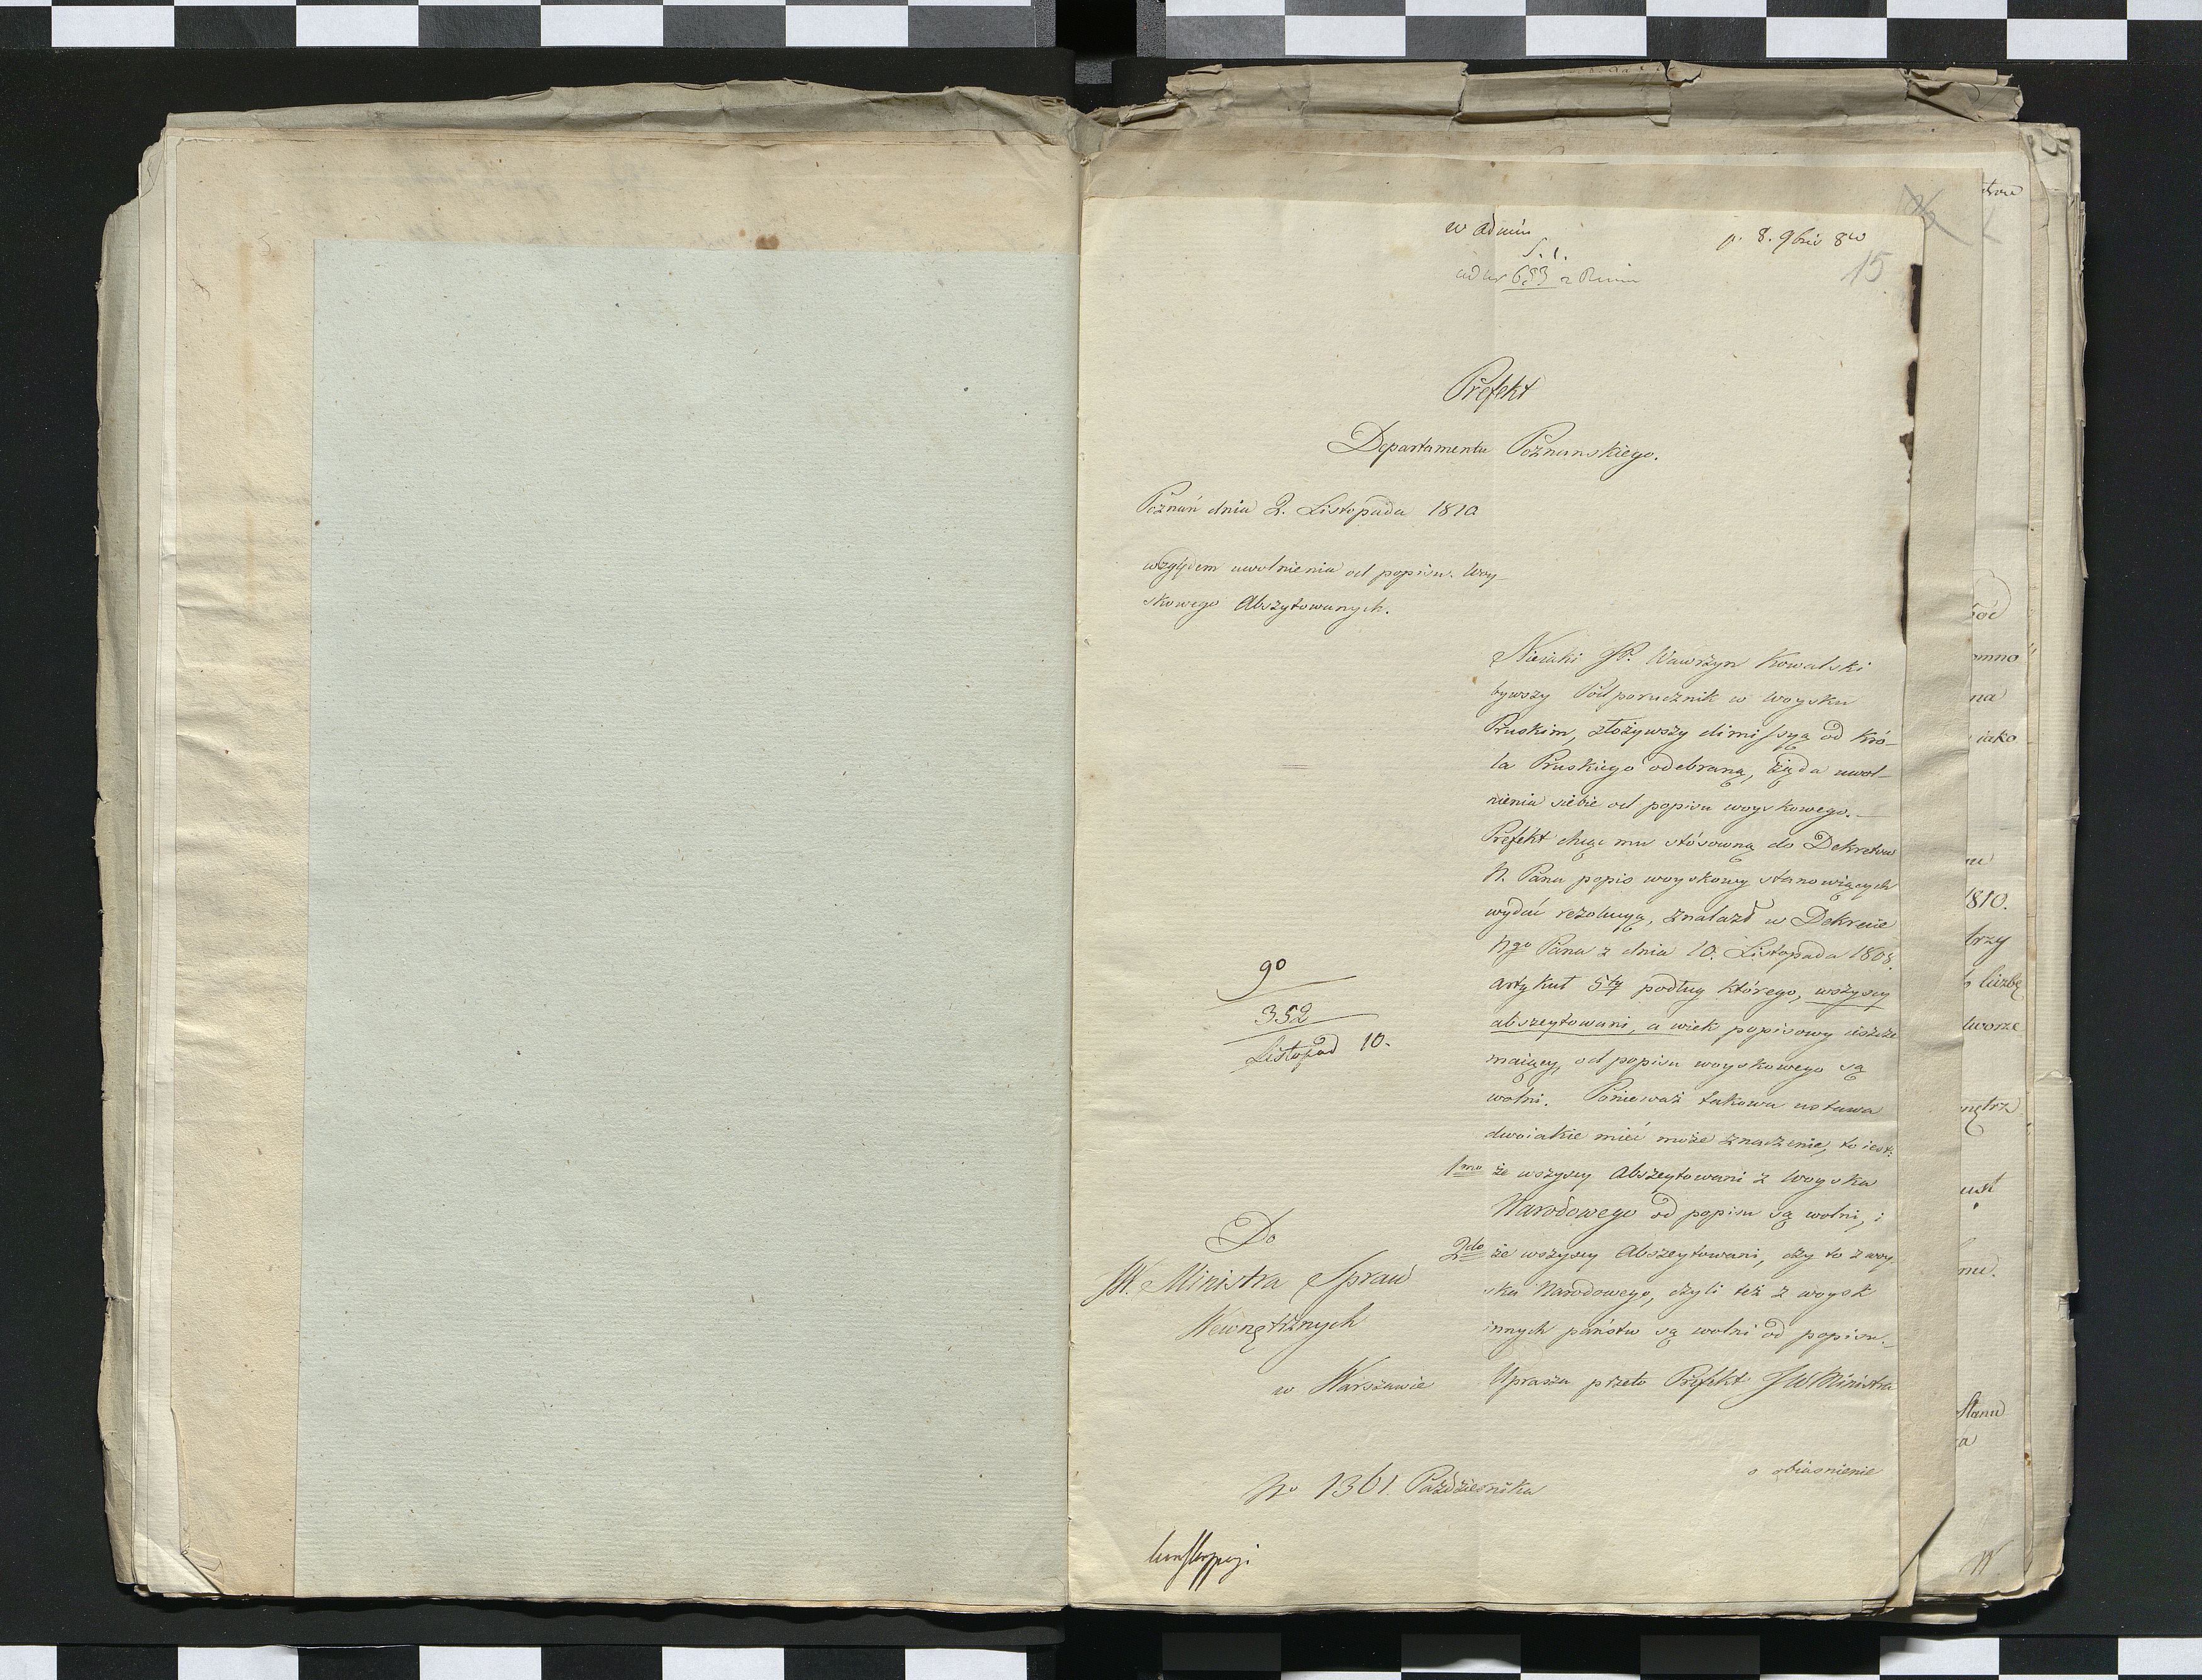 w admin
S. 1.
ad nr 653 a
p. 8. 9bris 8w
15
Prefekt
Departamentu Poznanskiego.
Poznań dnia 2. Listopada 1810
względem uwolnienia od popisu Woy-
skowego Abszytowanych.
Nieiaki JP. Wawrzyn Kowalski
bywszy Podporucznik w woysku
Pruskim, złożywszy dimissyą od Kró-
la Pruskiego odebraną, żąda uwol-
nienia siebie od popisu woyskowego.
Prefekt chcąc mu stósowną do Dekretow
N. Pana popis woyskowy stanowiących
wydać rezolucyą, znalazł w Dekrecie
Ngo Pana z dnia 10. Listopada 1808.
artykuł 5ty podług którego, wszyscy
abszeytowani, a wiek popisowy ieszcze
maiący, od popisu woyskowego są
wolni. Ponieważ takowa ustawa
dwoiakie mieć może znaczenie, to iest.
1mo że wszyscy Abszeytowani z Woyska
Narodowego od popisu są wolni, i
2do że wszyscy Abszeytowani, czy to z woy
ska Narodowego, czyli też z woysk
innych państw są wolni od popisu.
Uprasza przeto Prefekt JWMinistra
o obiasnienie
90
352
Listopad 10.
Do
JW. Ministra Spraw
Wewnętrznych
w Warszawie
No 1361 Październiku
omno
na
iako
1810.
trzy
liczbę